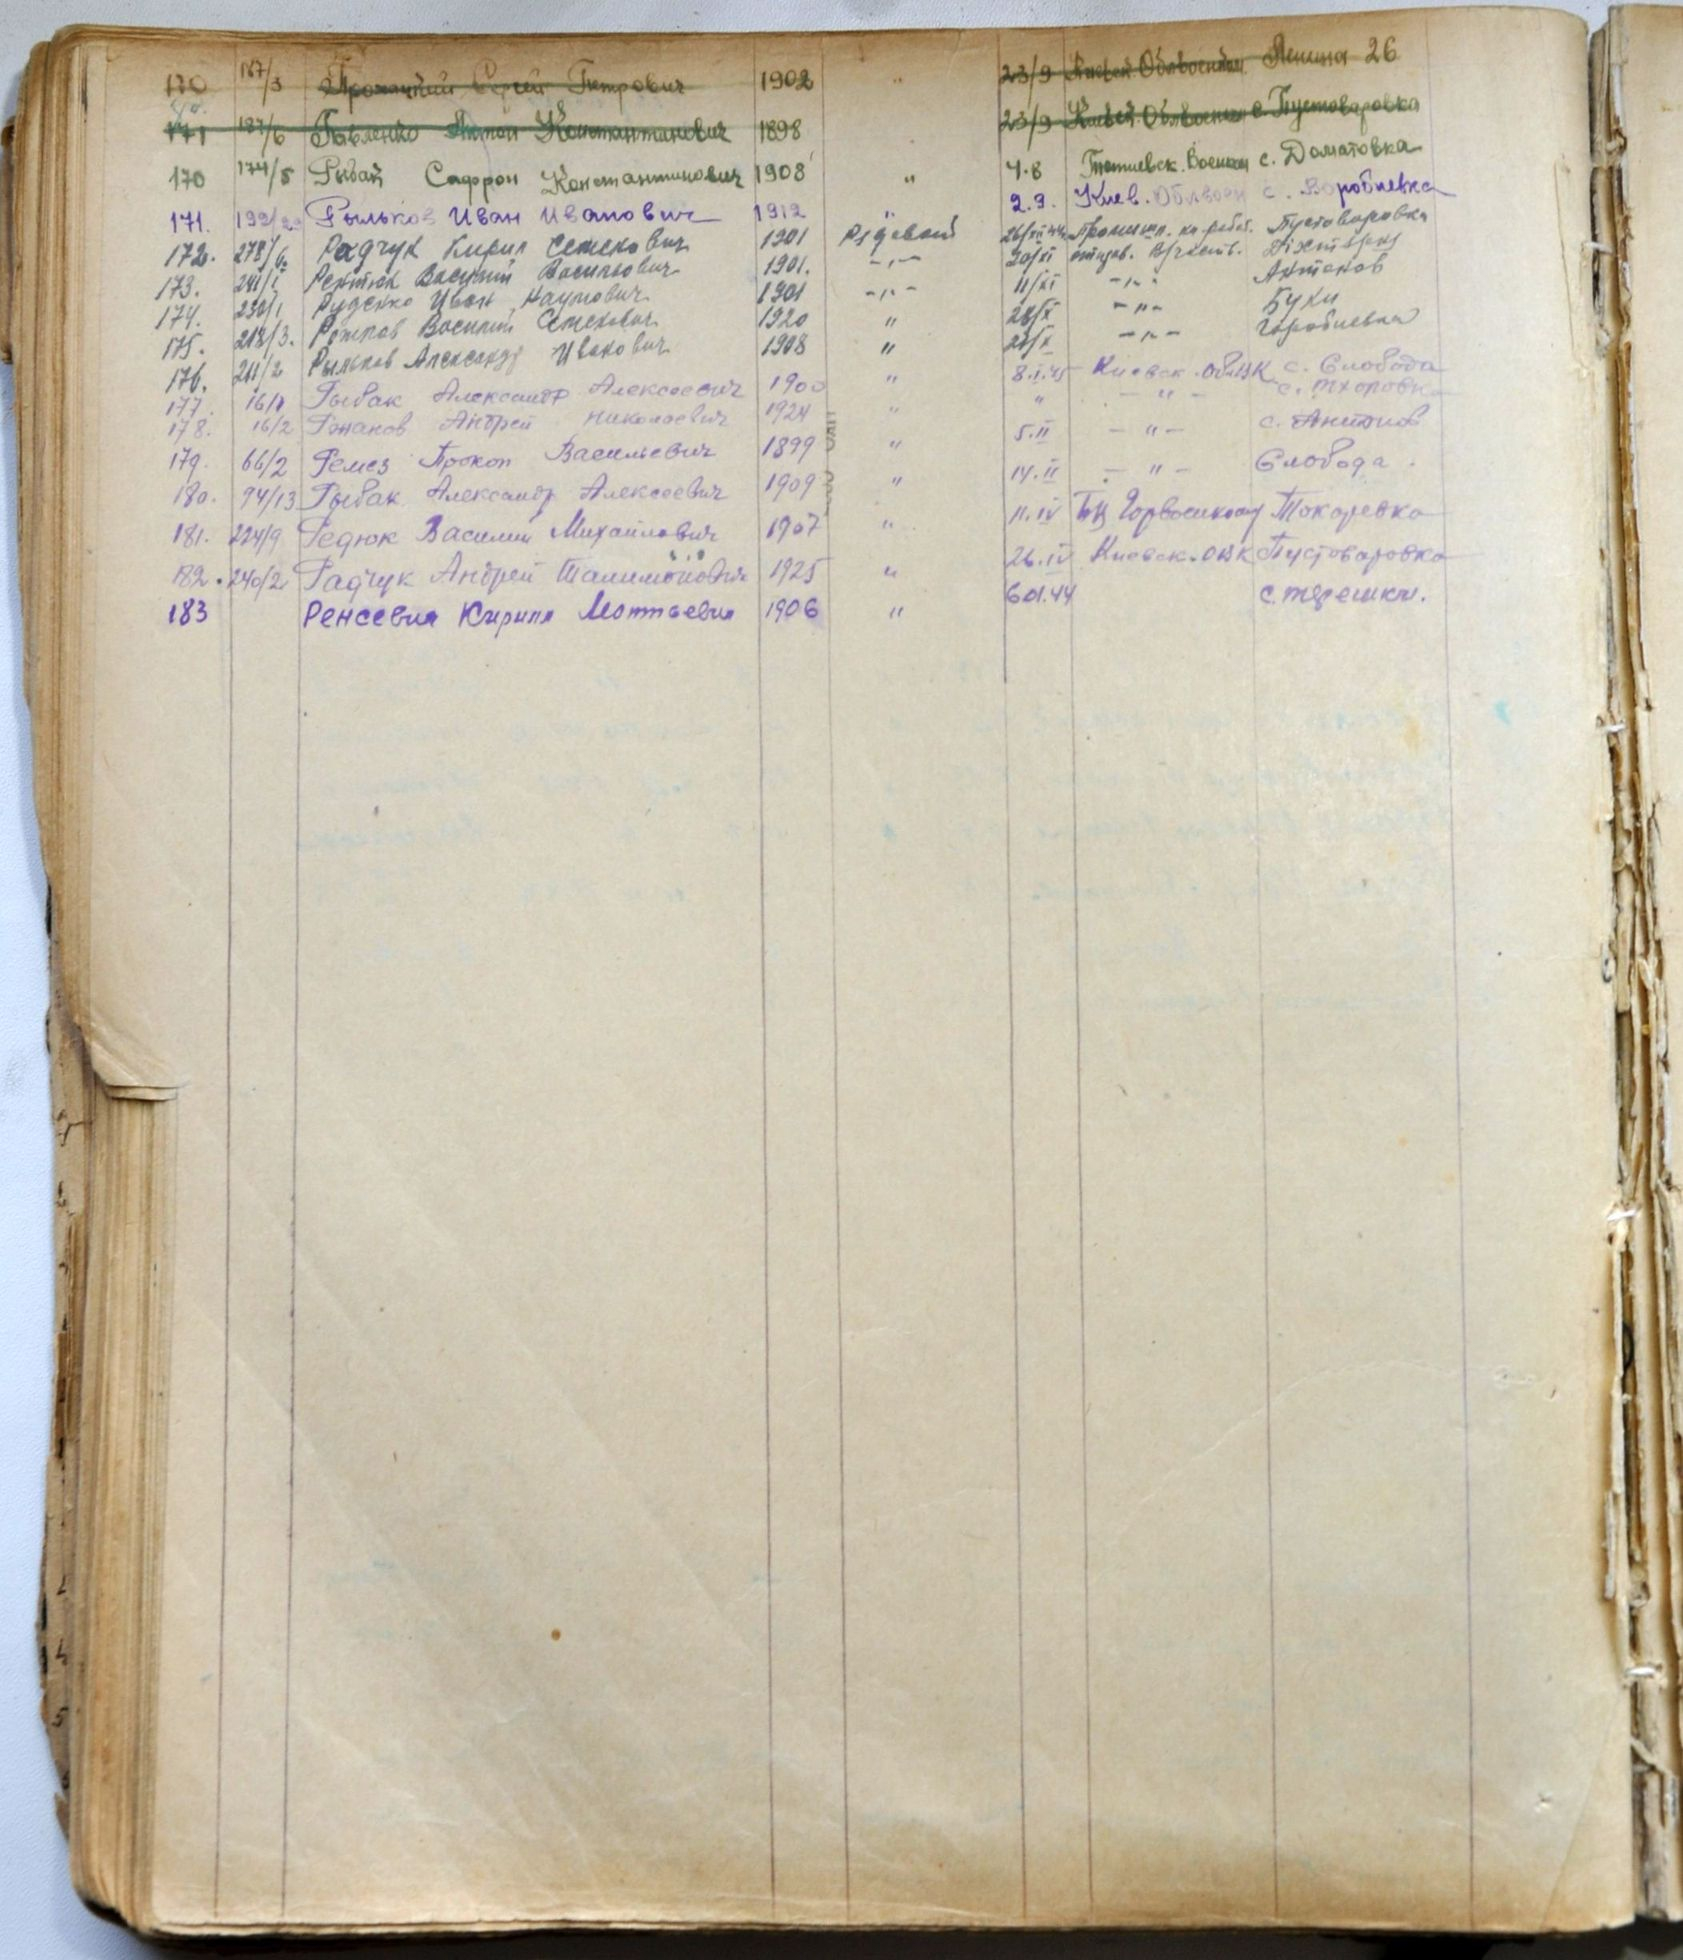 170 187/3 Сергей Петрович 1902 " 23/9 Киевск. Облвоенком Ленина 26
171 187/6 Павленко Антон Константинович 1898 23/9 Киевск. Облвоенком с. Пустоваровка
170 174/5 Рыбай Сафрон Константинович 1908 " 4.8 Тетиевск. Военком с. Долотовка
171. 199/29 Рыльков Иван Иванович 1912 " 2.9. Киев. Облвоен с. Горобиевка
172. 278/6. Радчук Кирил Семенович 1901 Рядовой 26/XII 44 Промышл. на работ. Пустоваровка
173. 241/1 Рентюк Василий Васильович 1901. -"- 20/XI отправ. в/част.
174. 230/1 Руденко Иван Наумович 1901 -"- 11/XI -"- Антонов
175. 218/3. Василий Семенович 1920 " 28/X -"- Буки
176. 211/2 Рыльков Александр Иванович 1908 " 21/X -"- Горобиевка
177. 16/1 Рыбак Александр Алексеевич 1900 " 8.I.45 Киевск. ОблВК с. Слобода
178. 16/2 Рожанов Андрей Николаевич 1924 " " -"- с. Тхоровка
179. 66/2 Ремез Прокоп Васильевич 1899 " 5.II -"- с. Антонов
180. 94/13 Рыбак Александр Алексеевич 1909 " 14.II -"- Слобода.
181. 224/9 Редюк Василий Михайлович 1907 " 11.IV БЦ Горвоенкомат Токаревка
182. 240/2 Радчук Андрей Талимонович 1925 " 26.IV Киевск. ОВК Пустоваровка
183 Ренсевич Кирилл Моттьевич 1906 " 6.01.44 с. терешки.